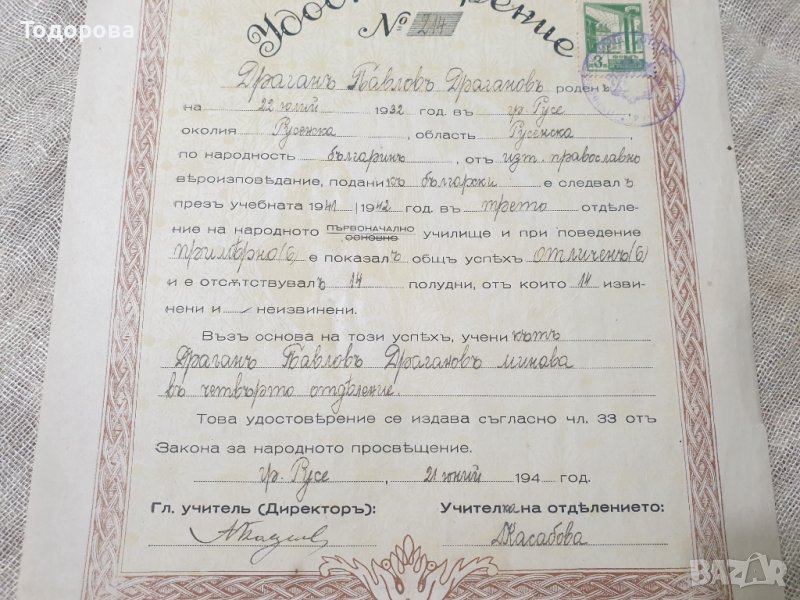 Тодорова
Удостоверение
№ 217
Драганъ Павловъ Драгановъ роденъ
на 22 юлий 1932 год. въ гр. Русе
околия Русенска, область Русенска,
по народность българинъ, отъ изт. православно
вѣроизповѣдание,поданикъ български е следвалъ
презъ учебната 1941/1942 год. въ трето отдѣле-
ние на народното ПЪРВОНАЧАЛНО ОСНОВНО училище и при поведение
примѣрно (6) е показалъ общъ успѣхъ отличенъ (6)
и е отсѫтствувалъ 14 полудни, отъ които 14 изви-
нени и неизвинени.
Възъ основа на този успѣхъ, ученикътъ
Драганъ Павловъ Драгановъ минава
въ четвърто отдѣление.
Това удостовѣрение се издава съгласно чл. 33 отъ
Закона за народното просвѣщение.
гр. Русе, 21 юний 194 год.
Гл. учитель (Директоръ): Учителка на отдѣлението:
Касабова
BAZAR
bazar.bg